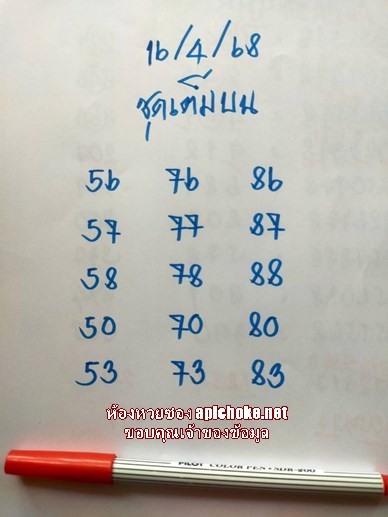 16/4/68
ชุดเต็มบน
56 76 86
57 77 87
58 78 88
50 70 80
53 73 83
ห้องหวยซอง apichoke.net
ขอบคุณเจ้าของข้อมูล
PILOT COLOR PEN • SDR-200